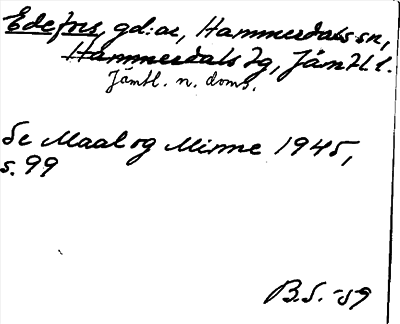 Edefors, gd:ar, Hammerdals sn,
Hammerdals tg, Jämtl. l.
Jämtl. n. doms.
Se Maal og Minne 1945,
s. 99
B.S. -59